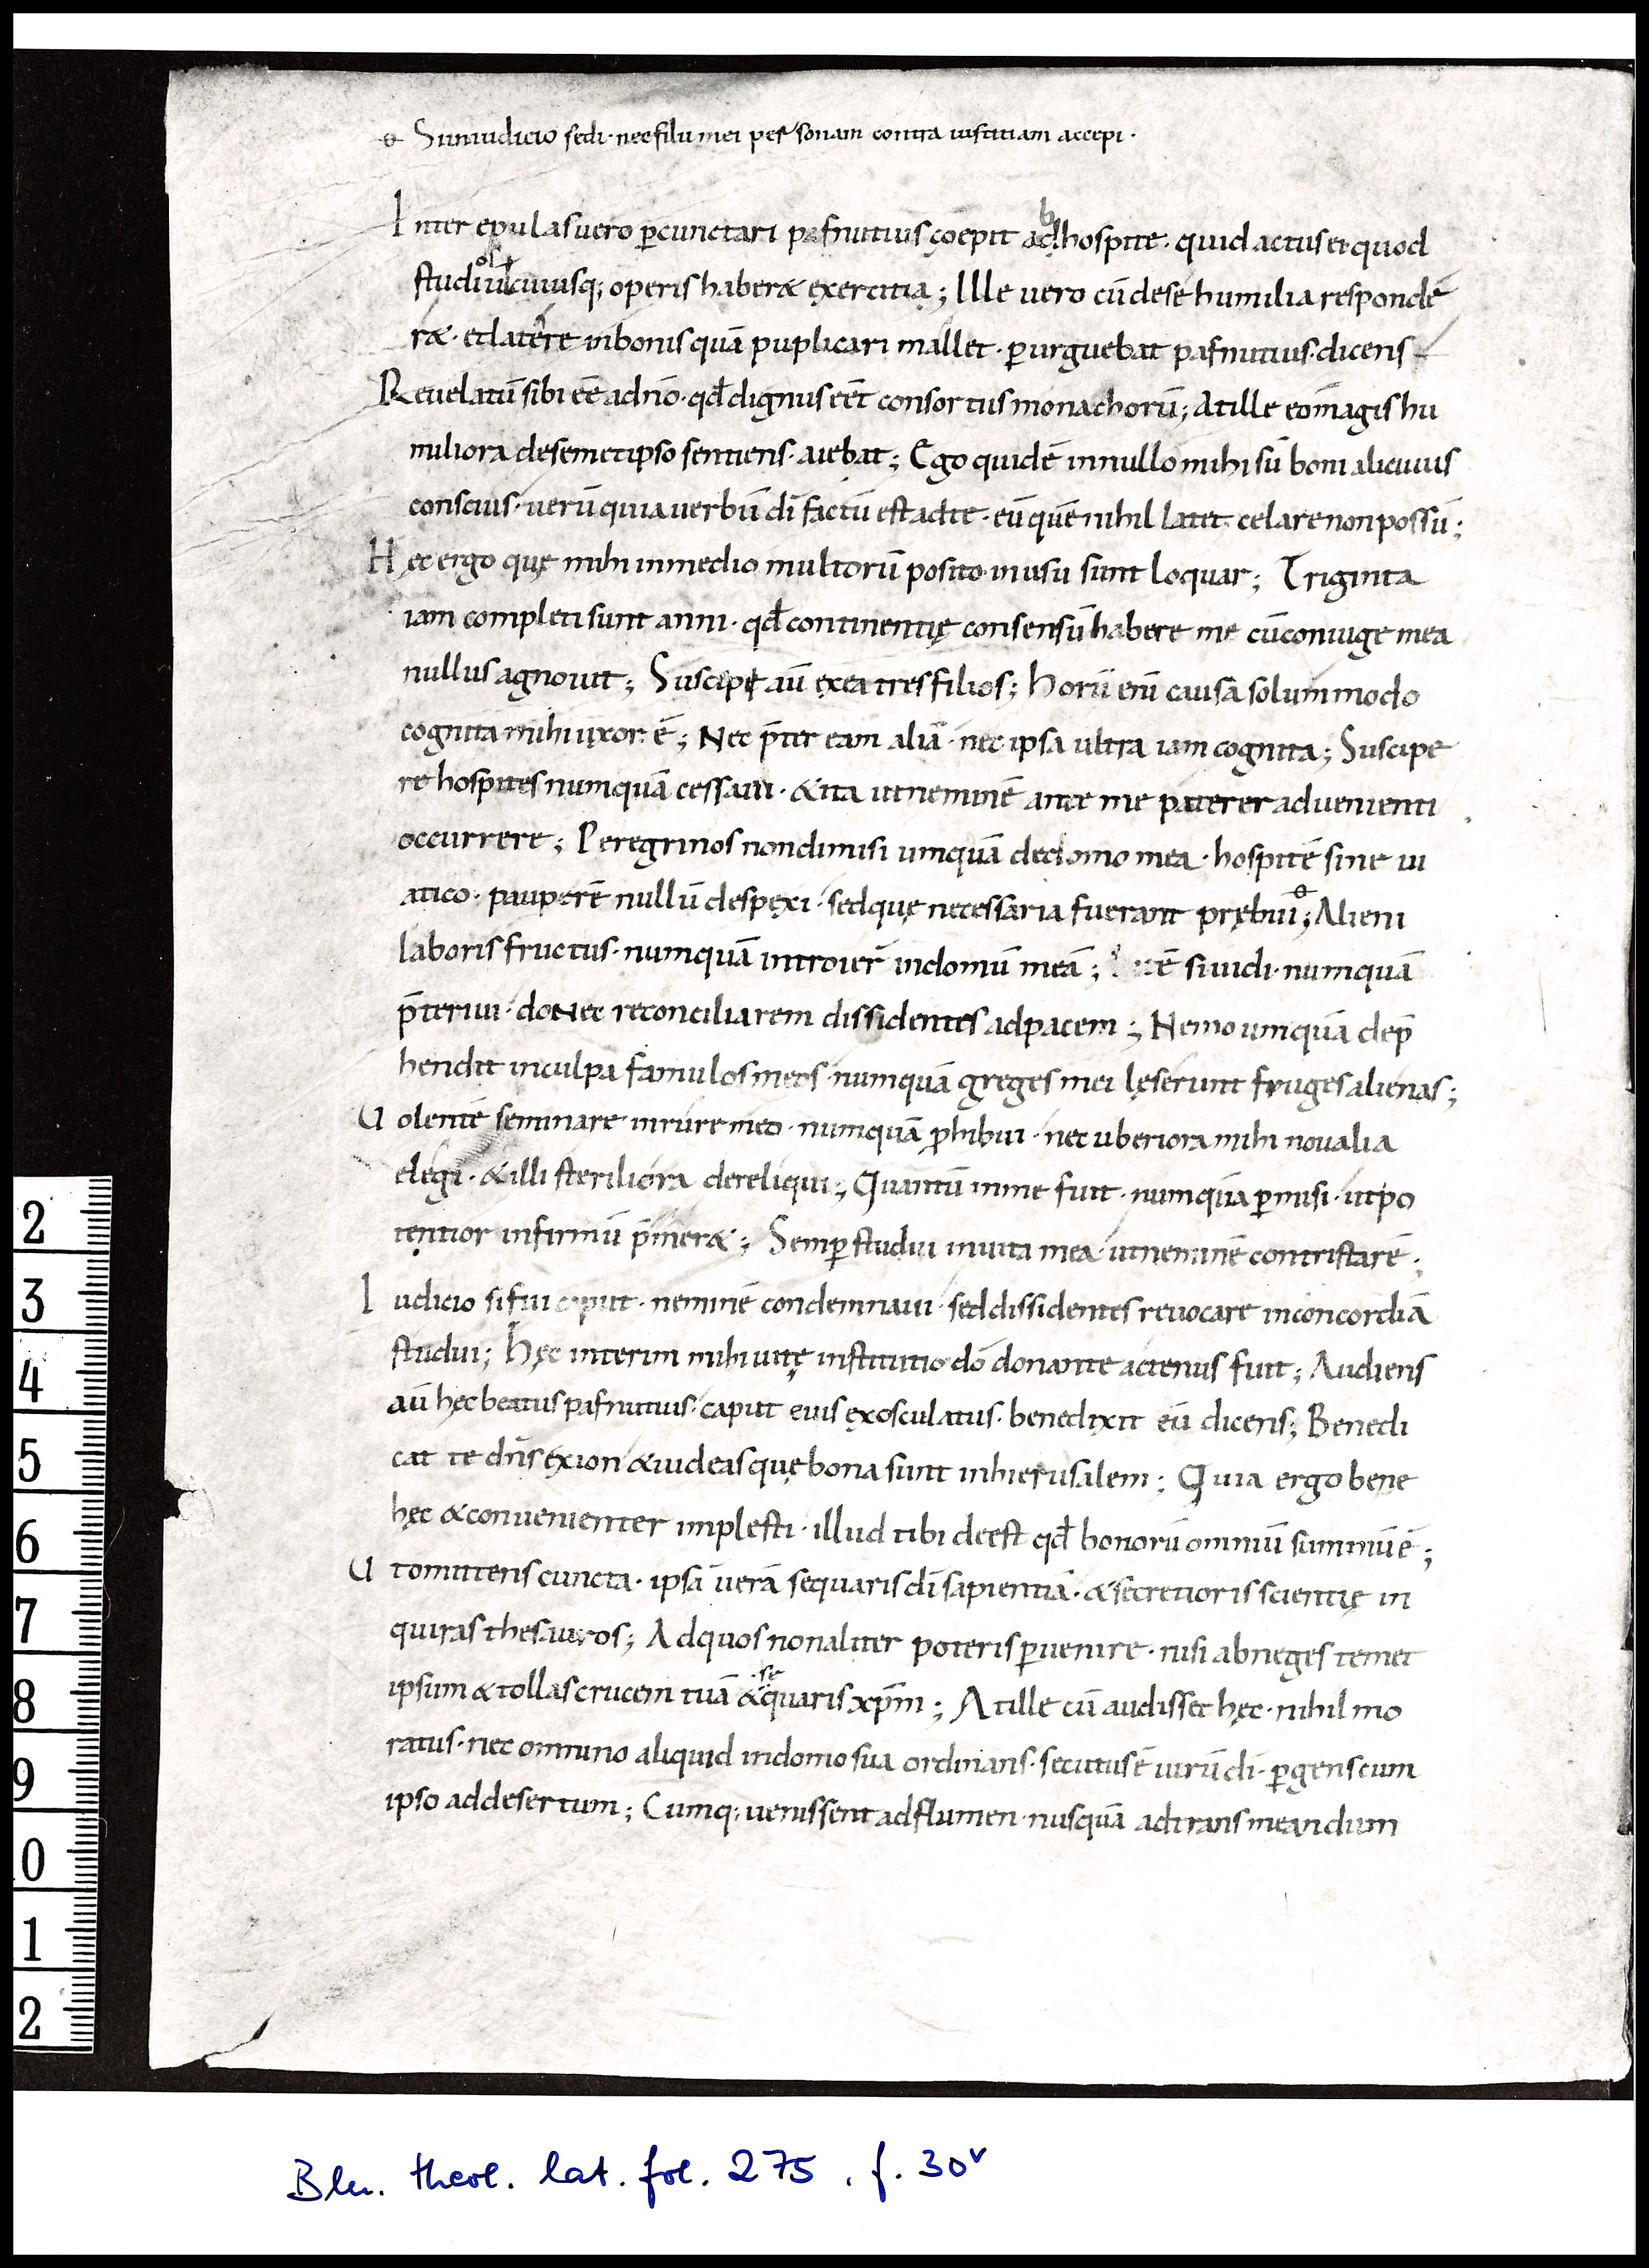 ɵ Siiniudicio sedi · nec filii mei personam contra iustitiam accepi ·
Inter epulas uero p̱cunctari pafnutius coepit ad b hospite · quid actus et quod
studiū ol cuiusq; operis haber& exercitia ; Ille uero cū dese humilia respondē
r& · et latere inbonis quā puplicari mallet · p̱urguebat pafnutius · dicens
Reuelatū sibi eē adn̄o · qđ dignus eēt consortiis monachorū ; At ille eo magis hu
miliora desemetipso sentiens · aiebat ; Ego quidē innullo mihi sū boni alicuius
conscius · uerū quia uerbū dī factū est adte · eū quē nihil latet celare non possū ;
Hęc ergo quę mihi inmedio multorū posito inusu sunt loquar ; Triginta
iam completi sunt anni · qđ continentię consensū habere me cū coniuge mea
nullus agnouit ; Suscepi aū exea tres filios ; Horū enī causā solummodo
cognita mihi uxor ē ; Nec p̄ter eam aliā · nec ipsa ultra iam cognita ; Suscipe
re hospites numquā cessaui · & ita ut neminē ante me paterer aduenienti
occurrere ; Peregrinos non dimisi umquā dedomo mea · hospitē sine ui
atico · pauperē nullū despexi · sed quę necessaria fuerant prębui ɵ ; Alieni
laboris fructus · numquā introier̄ indomū meā ; si uidi · numquā
p̄teriui · doNec reconciliarem dissidentes adpacem ; Nemo umquā dep̄
hendit inculpa famulos meos · numquā greges mei lęserunt fruges alienas ;
Uolentē seminare inrure meo · numquā p̱hibui · nec uberiora mihi noualia
elegi · & illi steriliora dereliqui ; Quantū inme fuit · numquā p̱misi · ut po
tentior infirmū p̄mer& ; Semp̱ studui inuita mea · ut neminē contristarē ;
Iudicio si fui caput · neminē condemnaui · sed dissidentes reuocare inconcordiā
studui ; Hęc interim mihi uitę institutio dō donante actenus fuit ; Audiens
aū hęc beatus pafnutius · caput eius exosculatus · benedixit eū dicens ; Benedi
cat te dn̄s exion & uideas quę bona sunt inhierusalem ; Quia ergo bene
hęc & conuenienter implesti · illud tibi deest qđ bonorū omniū summū ē ;
Ut omittens cuncta · ipsā uerā sequaris dī sapientiā · & secretioris scientię in
quiras thesauros ; Ad quos non aliter poteris p̱uenire · nisi abneges temet
ipsum & tollas crucem tuā & · se quaris xp̄m ; At ille cū audisset hęc · nihil mo
ratus · nec omnino aliquid indomo sua ordinans · secutus ē uirū dī · p̱gens cum
ipso addesertum ; Cumq; uenissent adflumen · nusquā adtransmeandum
2
3
4
5
6
7
8
9
0
1
2
Bln. theol. lat. fol. 275, f. 30v